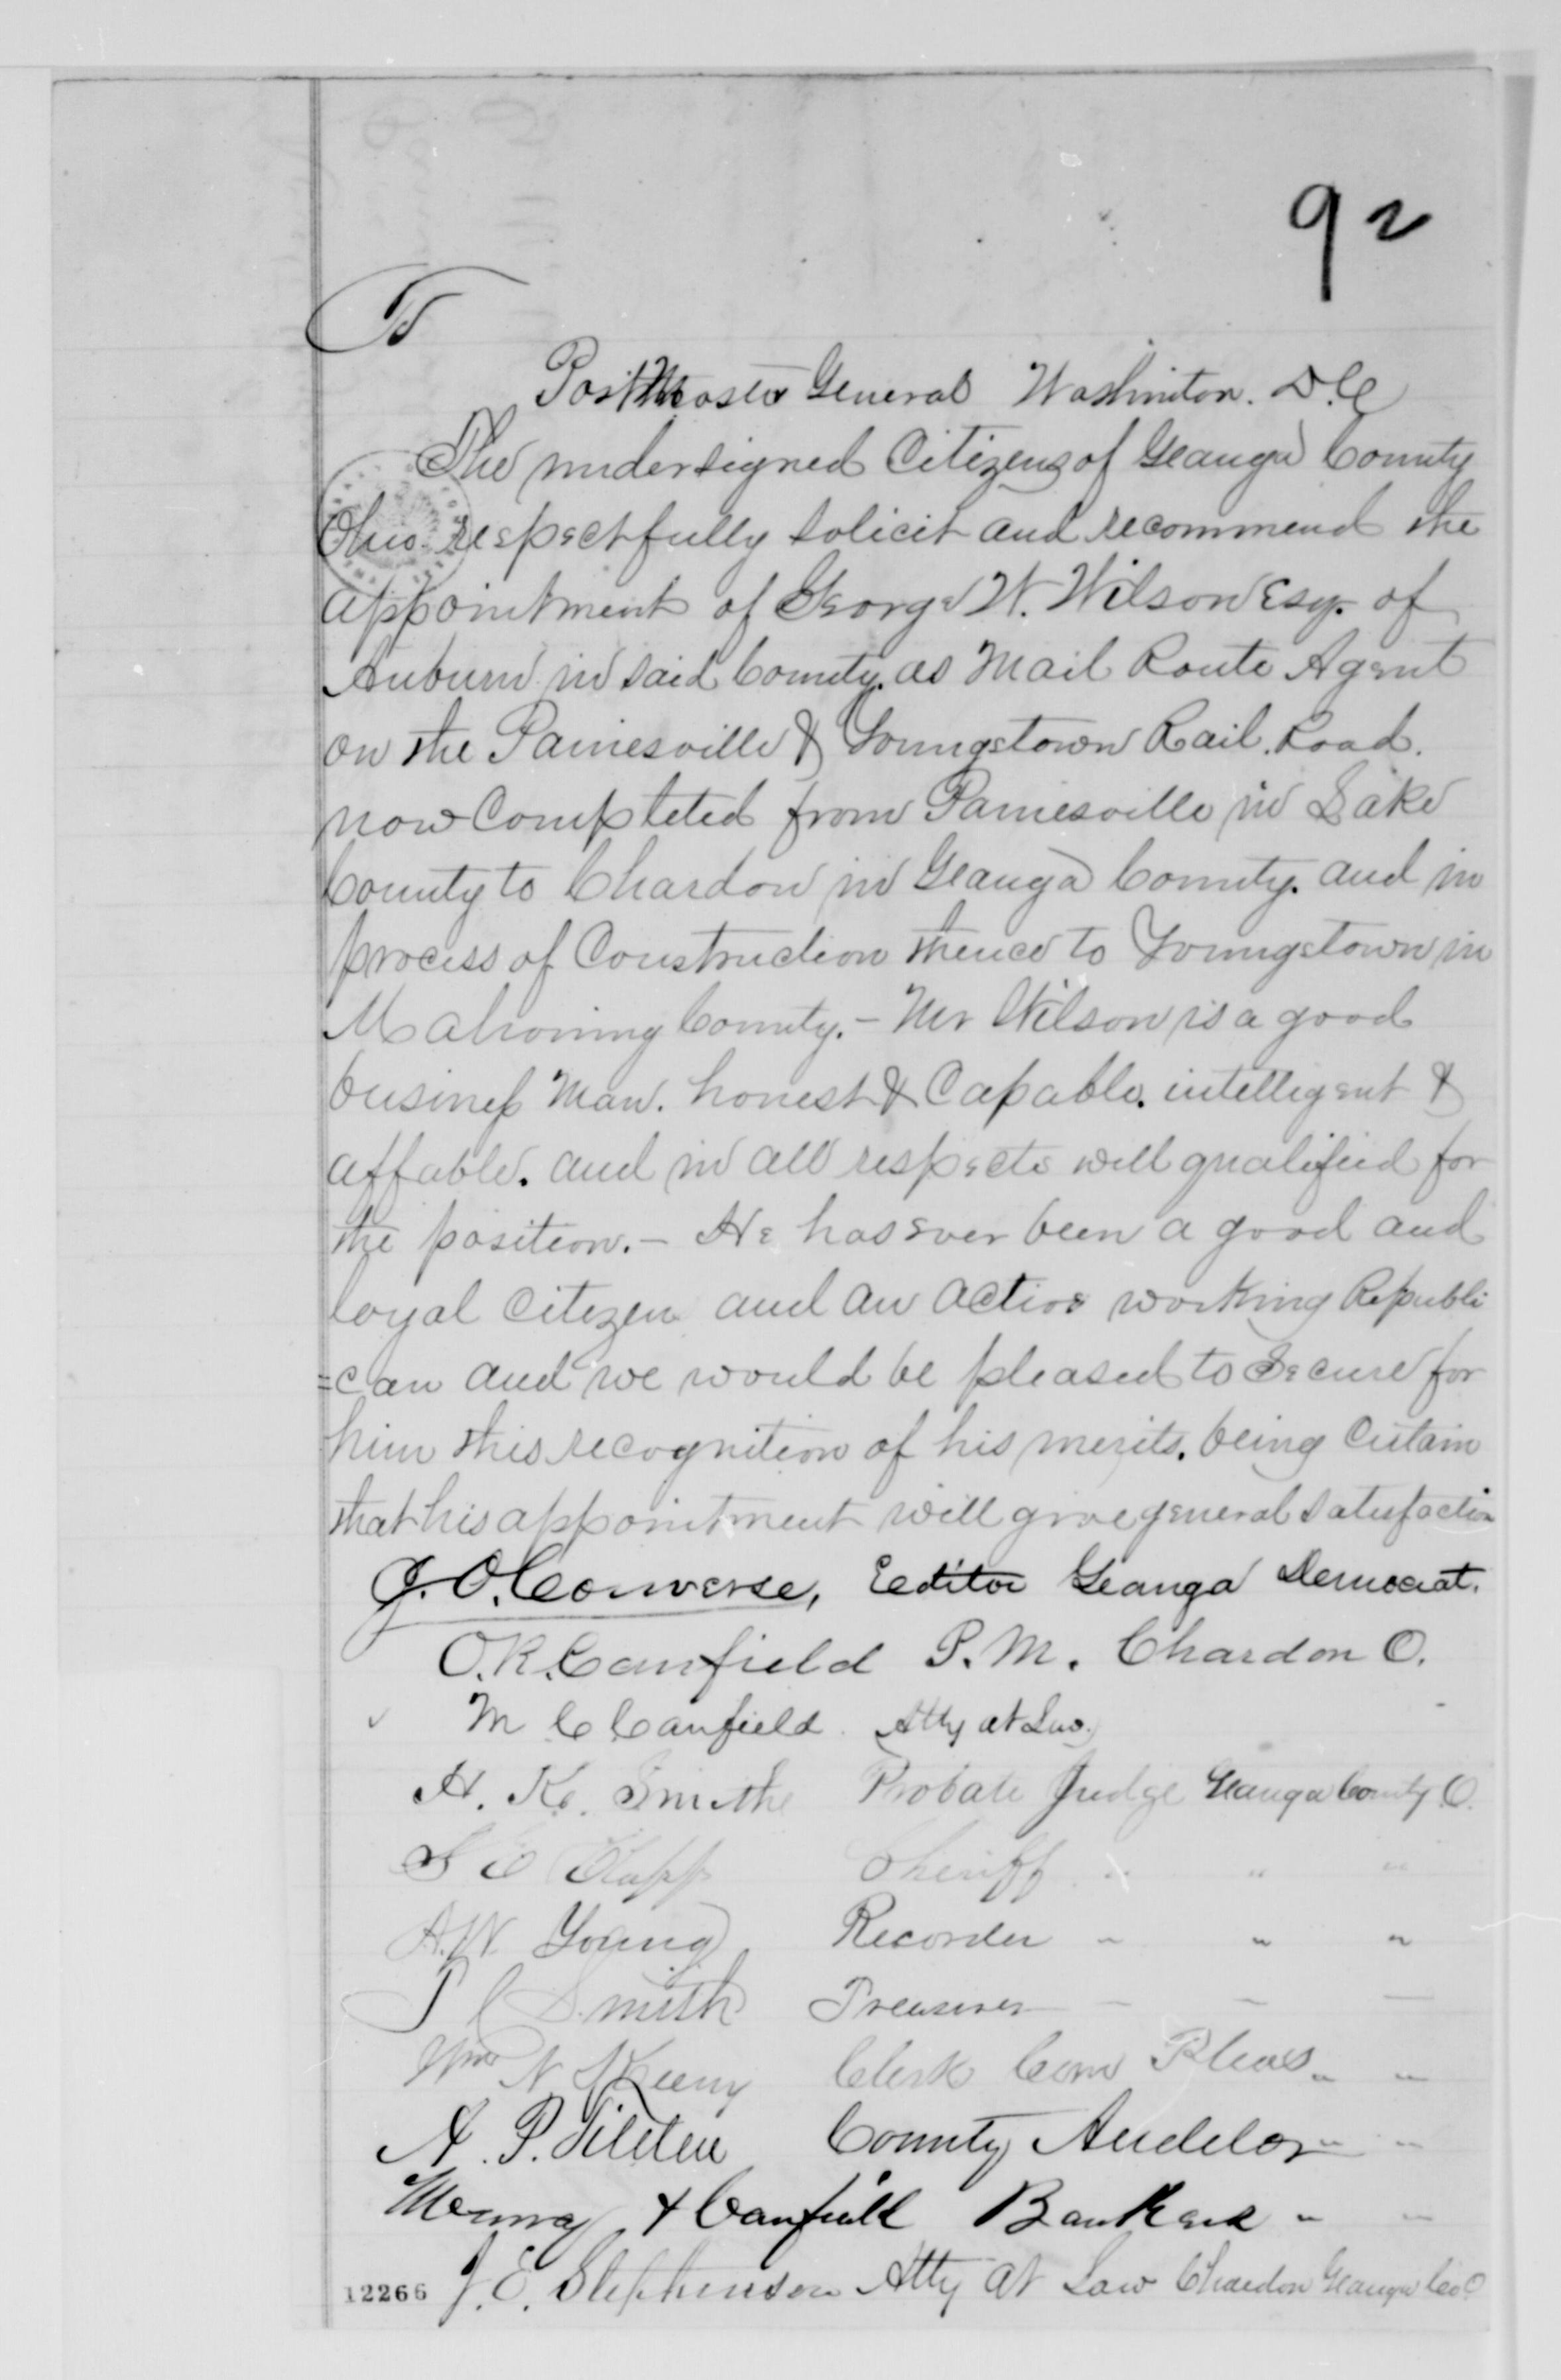 92
To
Postmaster General Washinton. D.C
The undersigned Citizens of Geauga County
Ohio respectfully solicit and recommend the
appointment of George W. Wilson Esq. of
Auburn in said County. as Mail Route Agent
on the Painesville & Youngstown Rail.Road.
now Completed from Painesville in Lake
County to Chardon in Geauga County. and in
process of Construction thence to Youngstown in
Mahoning County. – Mr Wilson is a good
business Man. honest & Capable. intelligent &
affable. and in all respects well qualified for
the position. – He has ever been a good and
loyal Citizen and an active working Republi
=can and we would be pleased to secure for
him this recognition of his merits. being Certain
that his appointment will give general satisfaction
J.O. Converse, Editor Geauga Democrat.
O.K. Canfield P.M. Chardon O.
M C Canfield Atty at Law.
H. K. Smith Probate Judge Geauga County O.
Sheriff " " "
A.W. Young Recorder " " "
Smith Treasurer — — —
Wm N Clerk Com Pleas " "
A. P. Tilden County Auditor " "
& Canfield Bankers " "
12266 J. E. Stephenson Atty at Law Chardon Geauga Co O